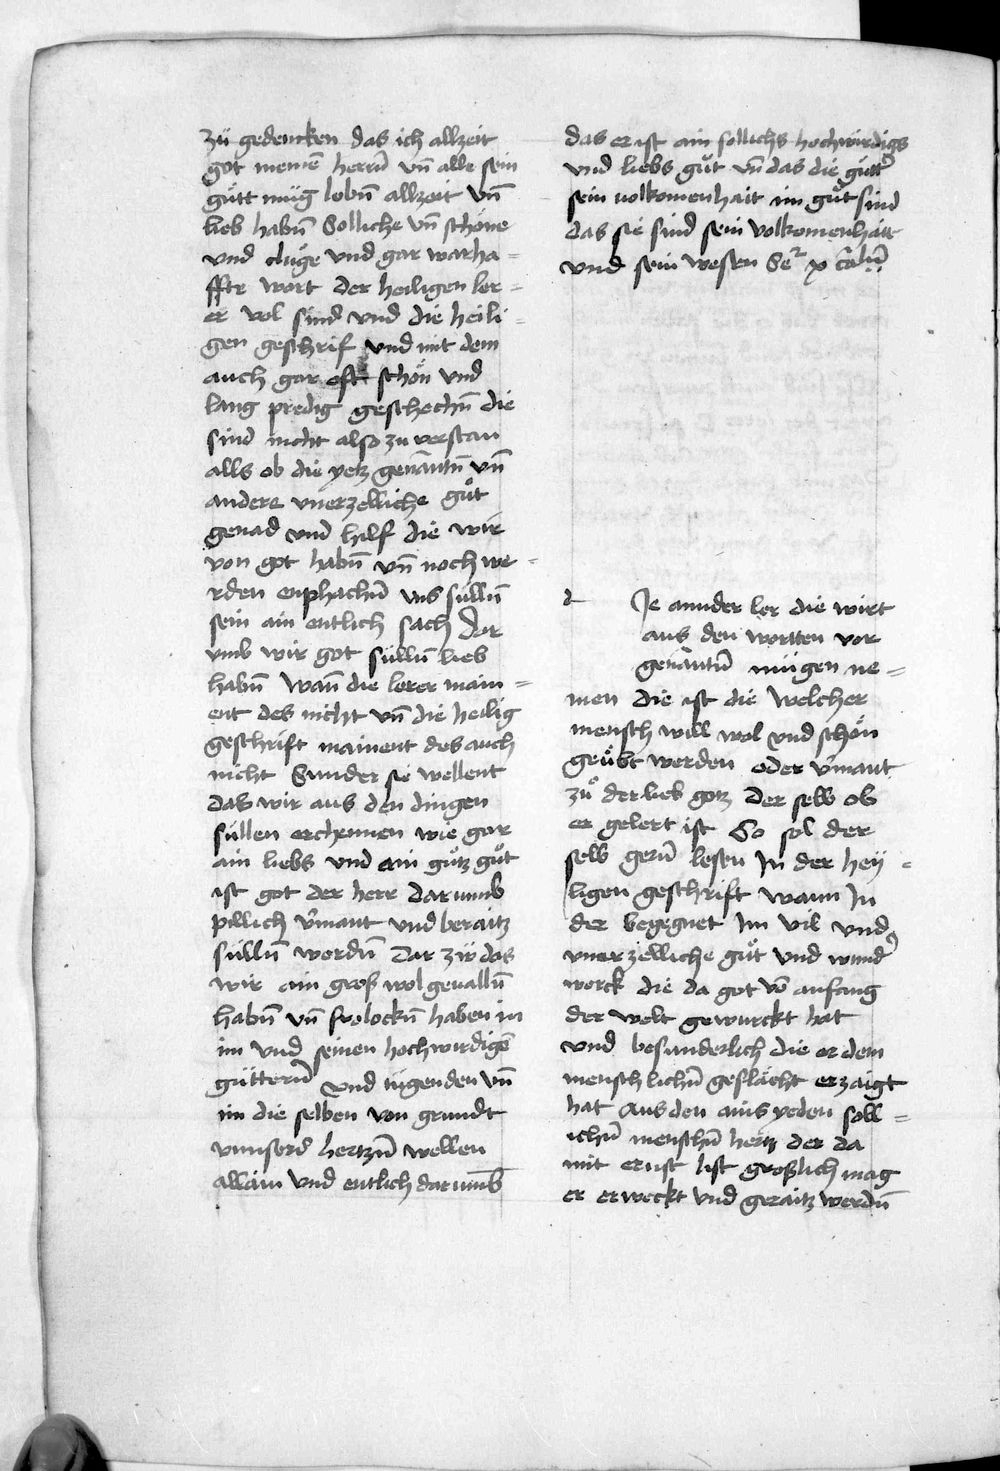 zů gedencken das ich allzeit
got meinē herrn̄ vn̄ alle sein
gůtt müg lobn̄ allzeit vn̄
lieb habn̄ Solliche vn̄ schöne
vnd cluge vnd gar warha=
ffte wort der heiligen ler=
er vol sind vnd die heili=
gen geschrif vnd mit dem
auch gar oft schön vnd
lang predig geschechn̄ die
sind nicht also zu verstan
alls ob die yetz genāntn̄ vn̄
andere vnerzelliche gůt
genad vnd hilf die wir
von got habn̄ vn̄ noch we=
rden enphachn̄ vns sülln̄
sein ain entlich sach Dar
vmb wir got sülln̄ lieb
habn̄ Wan̄ die lerer main=
ent des nicht vn̄ die heilig
geschrift mainent des auch
nicht Sunder sie wellent
das wir aus den dingen
süllen erchennen wie gar
ain liebs vnd ain gůtz gůt
ist got der herr darumb
pillich v̄mant vnd beraitz
sülln̄ werdn̄ Dar zů das
wir ain gros wolgeualln̄
habn̄ vn̄ frolockn̄ haben in
im vnd seinen hochwirdigē
güttern̄ vnd tugenden vn̄
im die selben von grundt
vnnserd hertzn̄ wellen
allain vnd entlich darumb
das er ist ain sollichs hochwirdigs
vnd liebs gůt vn̄ das die gütter
sein volkomenhait im gůt sind
das sie sind sein volkomenhait
vnd sein wesen
d Je annder ler die wirt
aus den wortten vor
genāntn̄ mügen ne=
men die ist die Welcher
mensch will wol vnd schön
geübt werden oder v̄mant
zů der lieb gotz Der selb ob
er gelert ist So sol der
selb gern̄ lesen In der hey=
ligen geschrift wann In
der begegnet Im vil vnd
vnerzelliche gůt vnd wunder
werck die da got vō anfang
der welt gewurckt hat
vnd besunderlich die er dem
menschlichn̄ geslächt erzaigt
hat Aus den ains yeden soll=
ichn̄ menschn̄ hertz der da
mit ernst list groslich mag
er erweckt vnd geraitz werdn̄